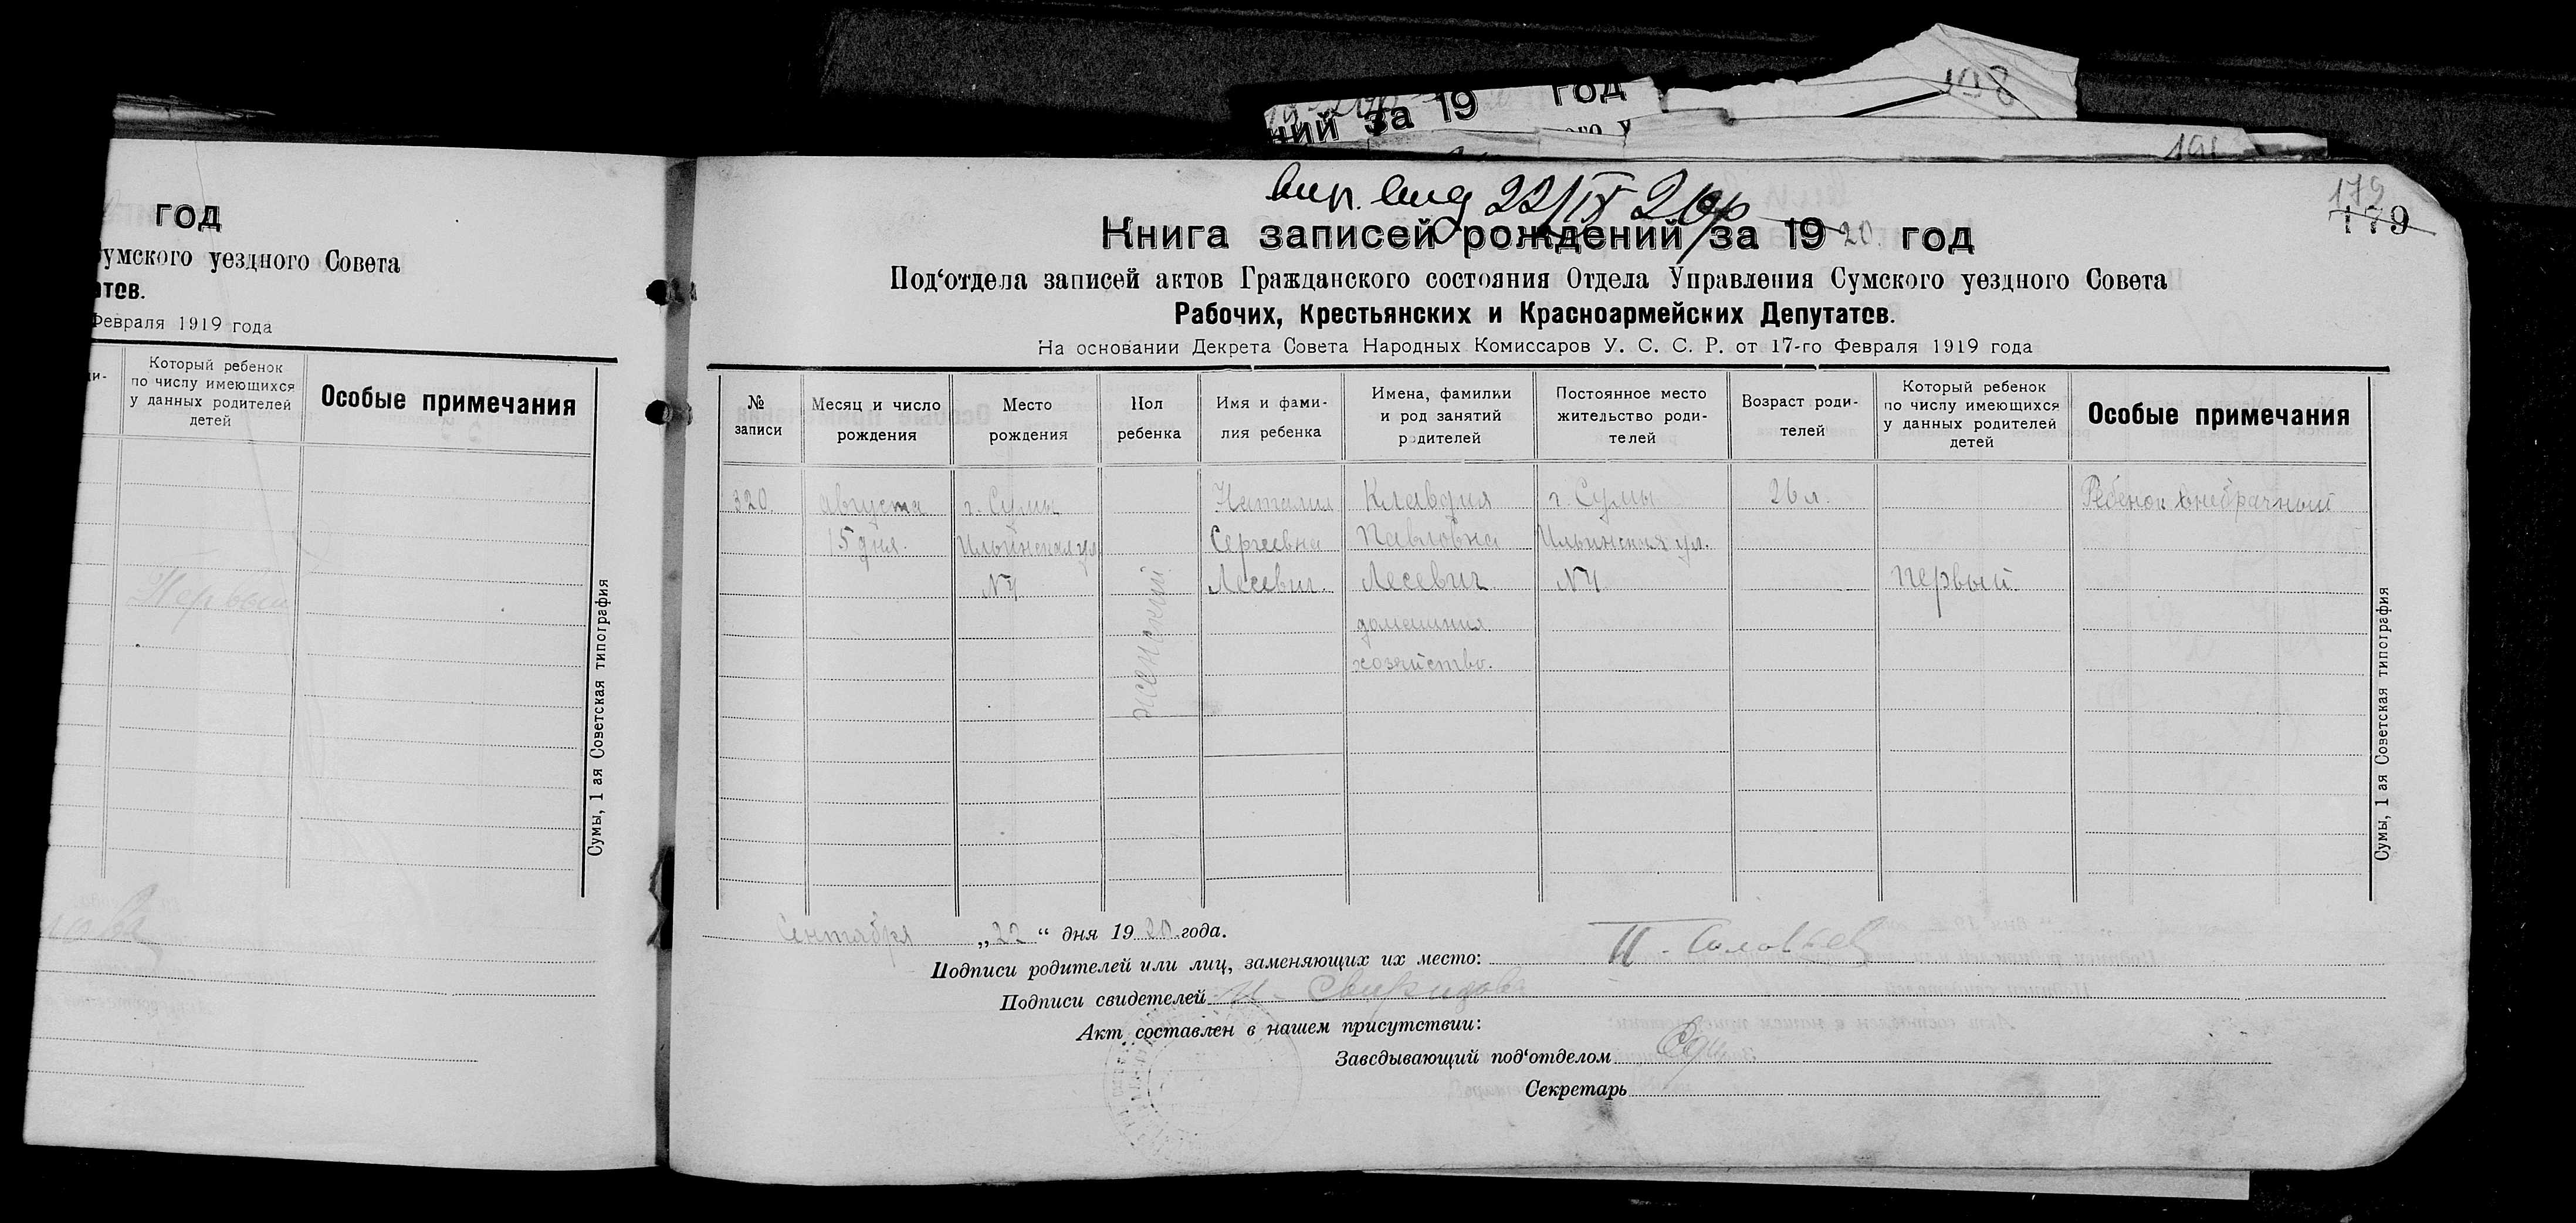 ний за 19 год
108
191
год
Сумского уездного Совета
атов.
Февраля 1919 года
Который ребенок
по числу имеющихся
у данных родителей
детей
Особые примечания
Первый
Сумы, 1 ая Советская типография
22/IX
179
179
Книга записей рождений за 1920. год
Под‘отдела записей актов Гражданского состояния Отдела Управления Сумского уездного Совета
Рабочих, Крестьянских и Красноармейских Депутатов.
На основании Декрета Совета Народных Комиссаров У. С. С. Р. от 17-го Февраля 1919 года
№
записи
Месяц и число
рождения
Место
рождения
Пол
ребенка
Имя и фами-
лия ребенка
Имена, фамилии
и род занятий
родителей
Постоянное место
жительство роди-
телей
Возраст роди-
телей
Который ребенок
по числу имеющихся
у данных родителей
детей
Особые примечания
320.
августа
15 дня.
г. Сумы
Ильинская ул
N4
женский
Наталия
Сергеевна
Лесевич.
Клавдия
Павловна
Лесевич
домашния
хозяйство.
г. Сумы
Ильинская ул.
N4
26 л.
первый.
Ребенок внебрачный
Сумы, 1 ая Советская типография
Сентября „22“ дня 1920 года.
Подписи родителей или лиц, заменяющих их место:
Подписи свидетелей
Акт составлен в нашем присутствии:
Заведывающий под‘отделом
Секретарь